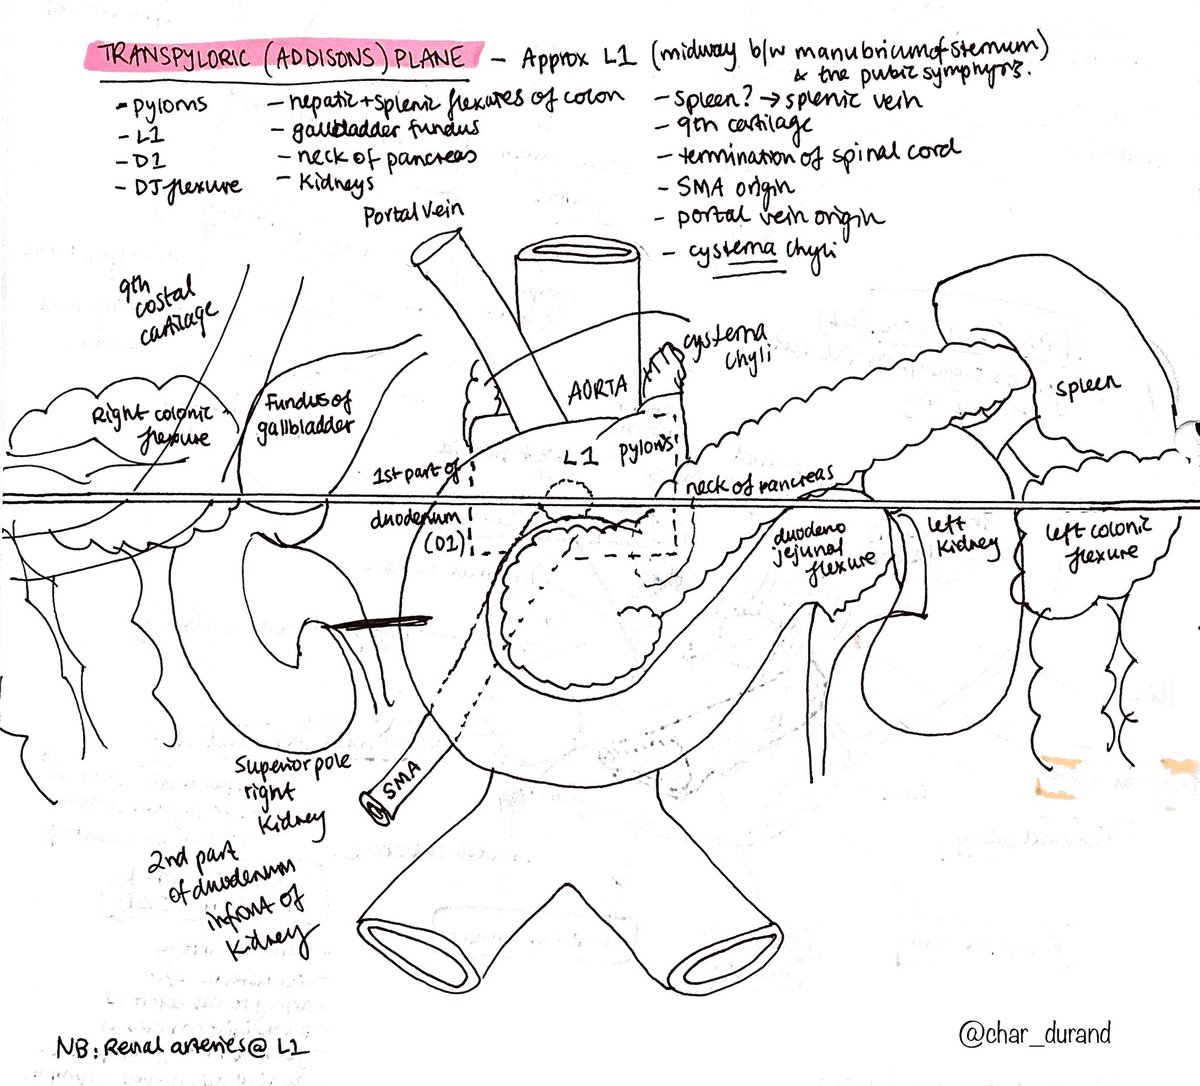 TRANSPYLORIC (ADDISONS) PLANE - Approx L1 (midway b/w manubrium of sternum)
& the pubic symphysis.
- pylorus
- L1
- D1
- DJ flexure
- hepatic + splenic flexures of colon
- gallbladder fundus
- neck of pancreas
- kidneys
- spleen? → splenic vein
- 9th cartilage
- termination of spinal cord
- SMA origin
- portal vein origin
- cysterna chyli
Portal vein
9th
costal
cartilage
Right colonic
flexure
Fundus of
gallbladder
AORTA
cysterna
chyli
spleen
1st part of
duodenum
(D1)
L1
pylorus
neck of pancreas
duodeno
jejunal
flexure
left
kidney
left colonic
flexure
Superior pole
right
kidney
SMA
2nd part
of duodenum
infront of
kidney
NB: Renal arteries @ L1
@char_durand